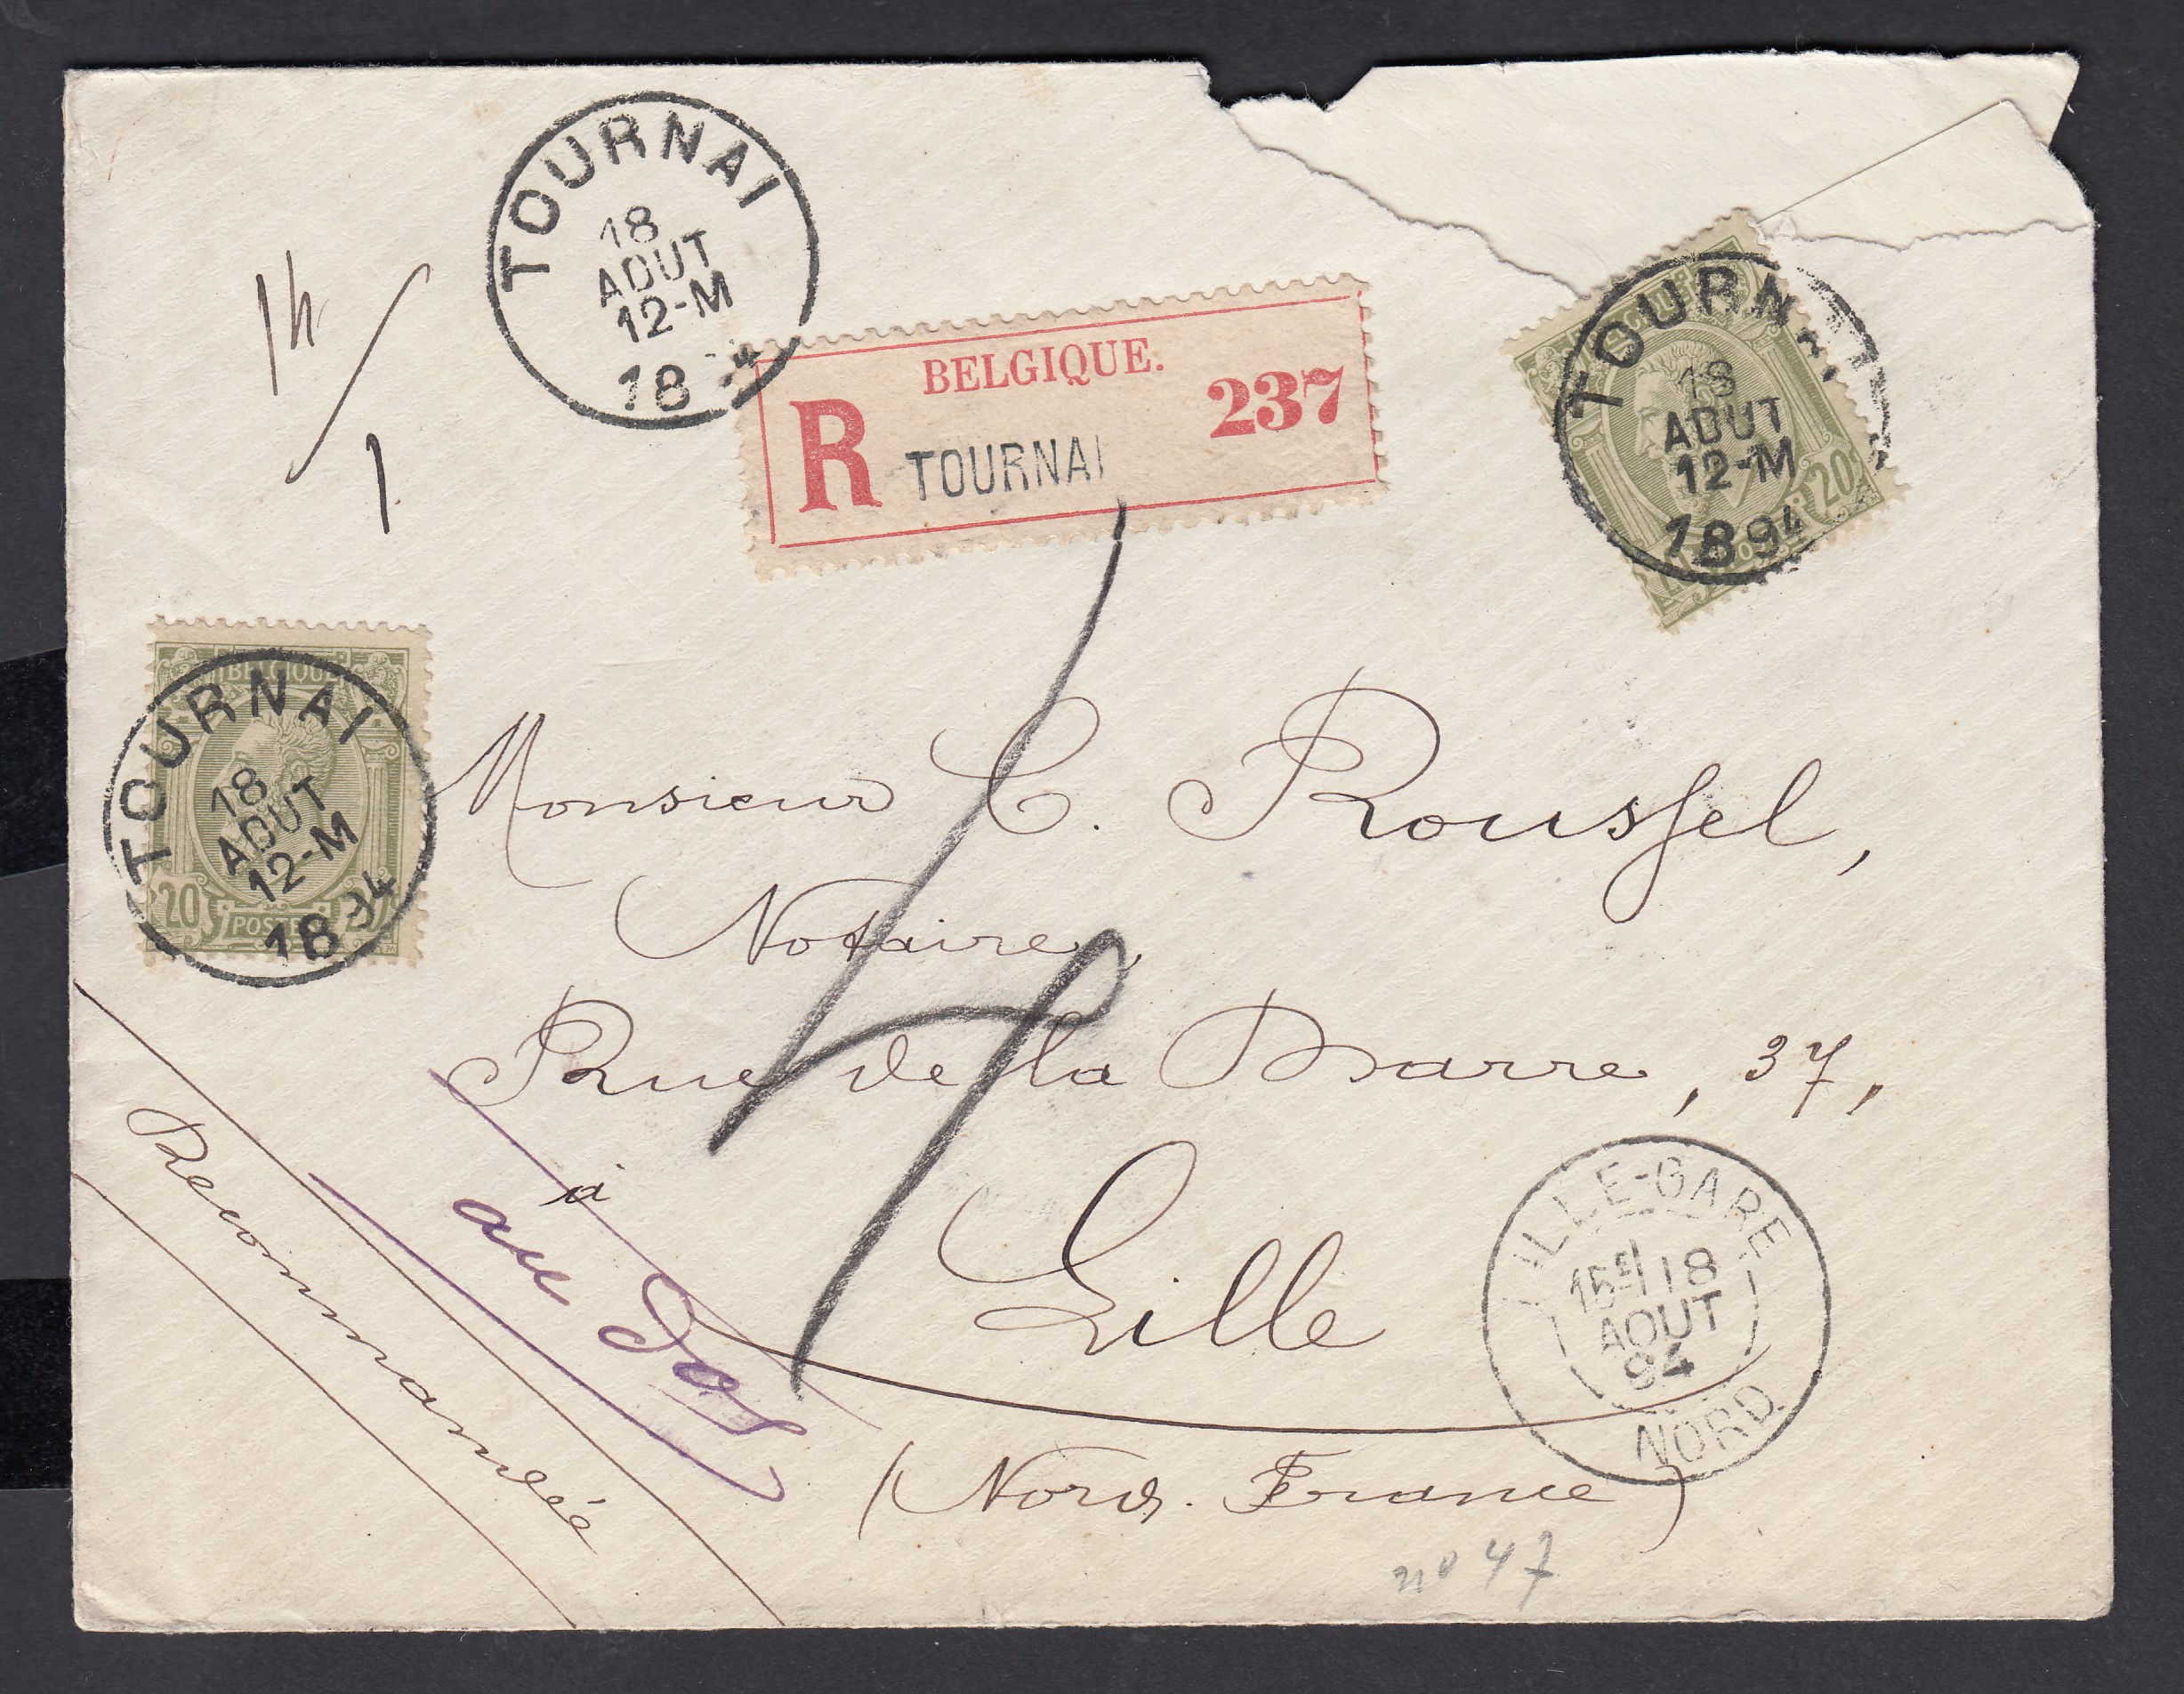 TOURNAI
18
AOUT
12-M
18 94
BELGIQUE.
R TOURNAI 237
TOURNAI
18
AOUT
12-M
1894
20
1
BELGIQUE
TOURNAI
18
AOUT
12-M
1894
20 POSTES 20
Monsieur C. Roussel,
Notaire,
Rue de la Barre, 37,
à
Lille
(Nord. France)
Recommandée
au dos
LILLE-GARE
15E 18
AOUT
94
NORD
no 47